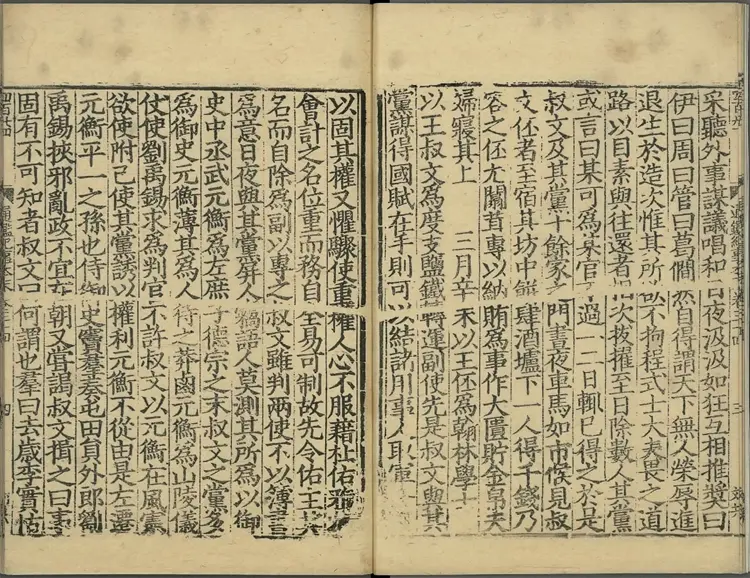 采聽外事謀議唱和日夜汲汲如狂互相推奬曰
伊曰周曰管曰葛僩然自得謂天下無人榮辱進
退生於造次惟其所欲不拘程式士大夫畏之道
路以目素與往還者相次拔擢至日除數人其黨
或言曰某可爲某官不過一二日輒已得之於是
叔文及其黨十餘家之門晝夜車馬如市候見叔
文伾者至宿其坊中餅肆酒壚下一人得千錢乃
容之伾尤闒茸專以納賄爲事作大匱貯金帛夫
婦寢其上　三月辛未以王伾爲翰林學士
以王叔文爲度支鹽鐵轉運副使先是叔文與其
黨謀得國賦在手則可以結諸用事人取軍
以固其權又懼驟使重權人心不服藉杜佑雅
會計之名位重而務自全易可制故先令佑主其
名而自除爲副以專之叔文雖判兩使不以簿書
爲意日夜與其黨屏人竊語人莫測其所爲以御
史中丞武元衡爲左庶子德宗之末叔文之黨多
爲御史元衡薄其爲人待之莽鹵元衡爲山陵儀
仗使劉禹錫求爲判官不許叔文以元衡在風憲
欲使附已使其黨誘以權利元衡不從由是左遷
元衡平一之孫也侍御史竇羣奏屯田員外郎劉
禹錫挾邪亂政不宜在朝又嘗謁叔文揖之曰事
固有不可知者叔文曰何謂也羣曰去歲李實怙